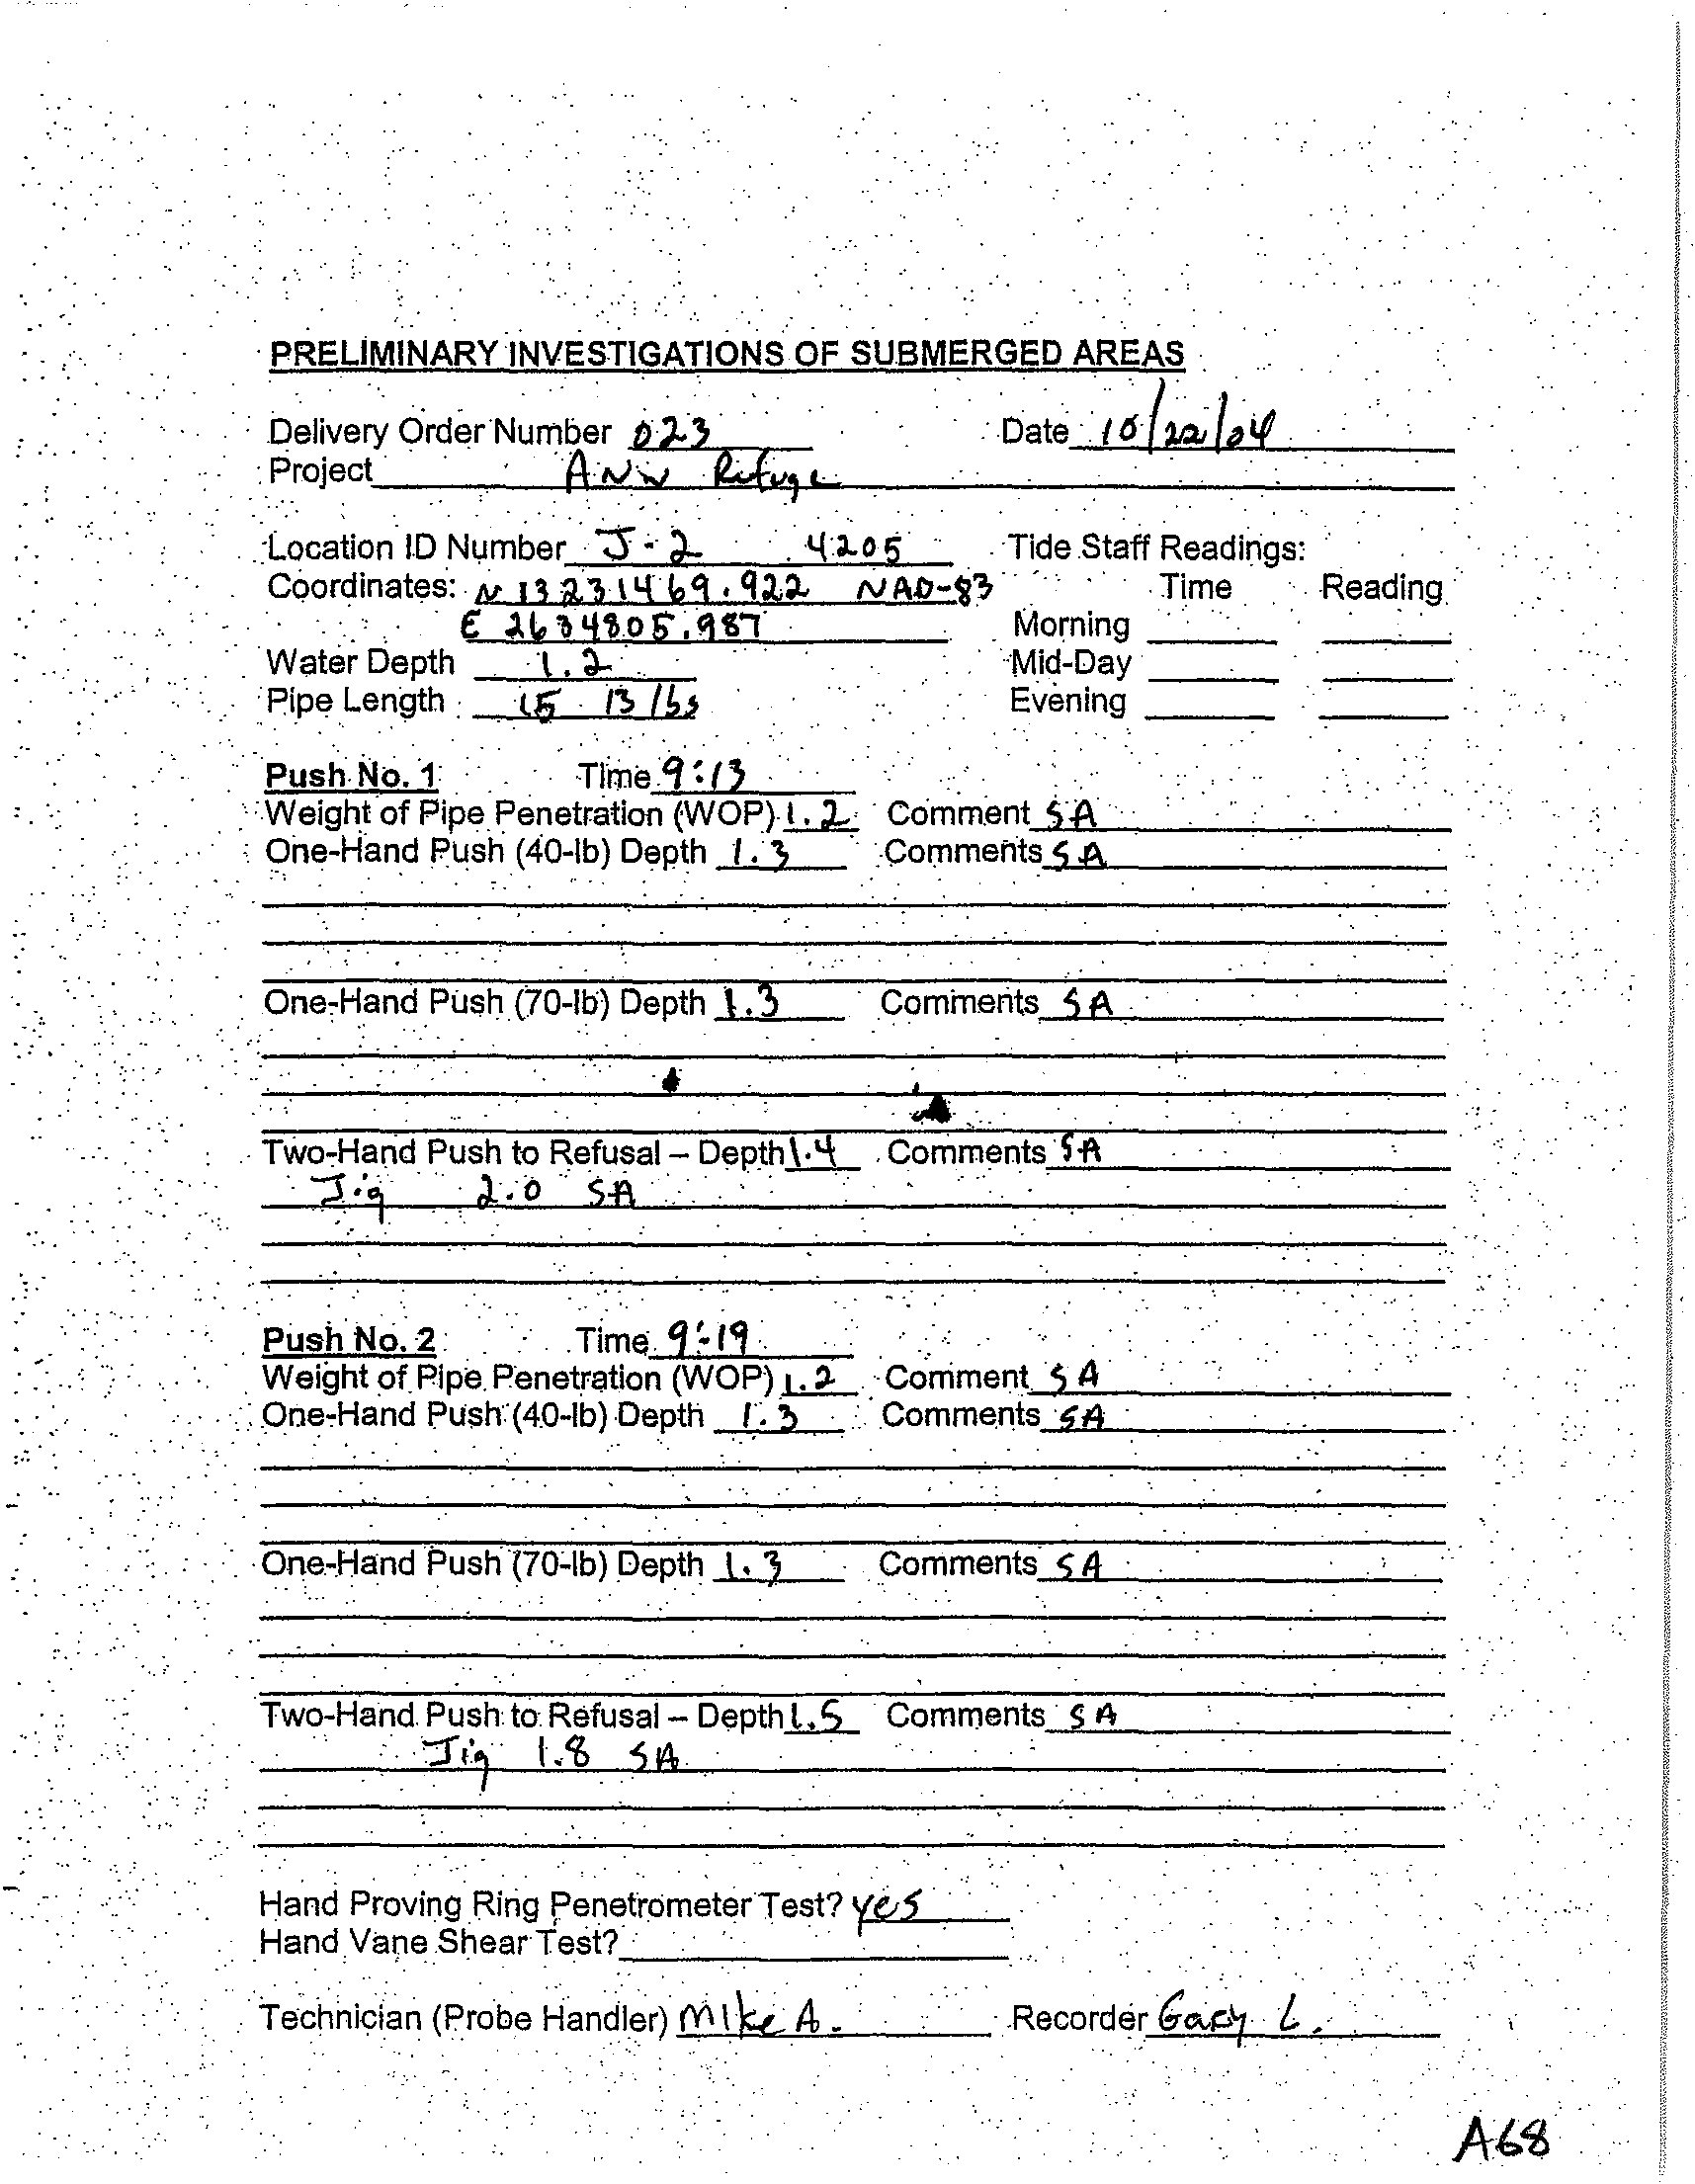 PRELIMINARY INVESTIGATIONS OF SUBMERGED AREAS
Delivery Order Number 023 Date 10/22/04
Project ANW Refuge
Location ID Number J-2 4205 Tide Staff Readings:
Coordinates: N 13231469.922 NAD-83 Time Reading
E 2634805.987 Morning
Water Depth 1.2 Mid-Day
Pipe Length 15 13 lbs Evening
Push No. 1 Time 9:13
Weight of Pipe Penetration (WOP) 1.2 Comment SA
One-Hand Push (40-lb) Depth 1.3 Comments SA
One-Hand Push (70-lb) Depth 1.3 Comments SA
Two-Hand Push to Refusal – Depth 1.4 Comments SA
Jig 2.0 SA
Push No. 2 Time 9:19
Weight of Pipe Penetration (WOP) 1.2 Comment SA
One-Hand Push (40-lb) Depth 1.3 Comments SA
One-Hand Push (70-lb) Depth 1.3 Comments SA
Two-Hand Push to Refusal – Depth 1.5 Comments SA
Jig 1.8 SA
Hand Proving Ring Penetrometer Test? yes
Hand Vane Shear Test?
Technician (Probe Handler) Mike A. Recorder Gary L.
A68